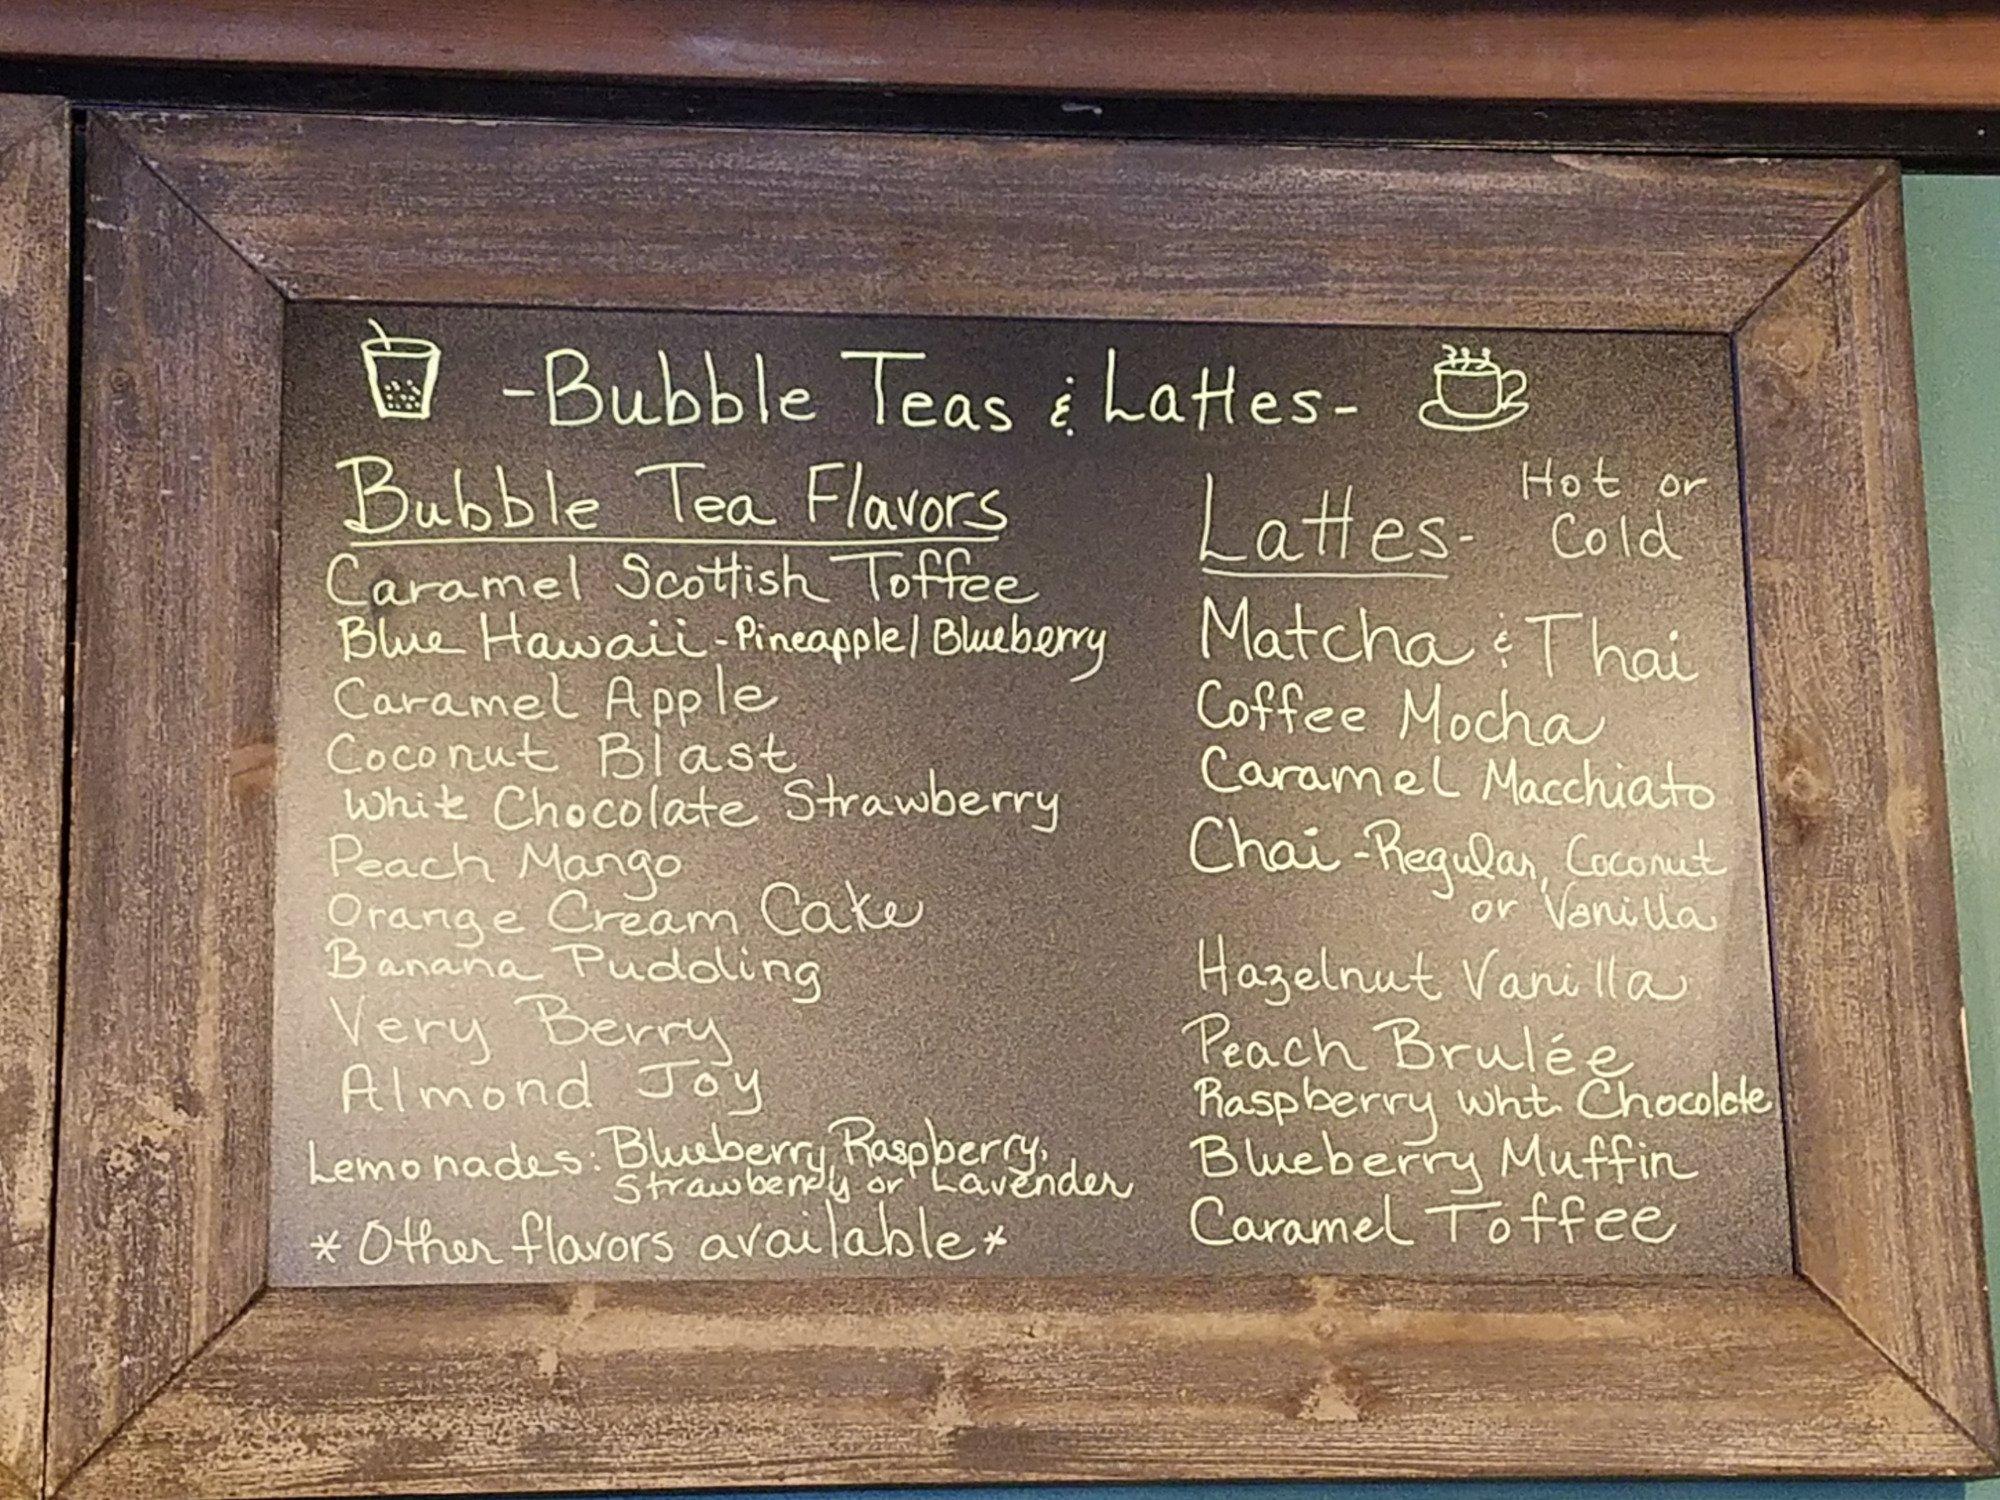 -Bubble Teas & Lattes-
Bubble Tea Flavors
Caramel Scottish Toffee
Blue Hawaii - Pineapple/Blueberry
Caramel Apple
Coconut Blast
White Chocolate Strawberry
Peach Mango
Orange Cream Cake
Banana Pudding
Very Berry
Almond Joy
Lemonades: Blueberry, Raspberry,
Strawberry or Lavender
*Other flavors available*
Lattes- Hot or
Cold
Matcha & Thai
Coffee Mocha
Caramel Macchiato
Chai - Regular, Coconut
or Vanilla
Hazelnut Vanilla
Peach Brulée
Raspberry Wht Chocolate
Blueberry Muffin
Caramel Toffee